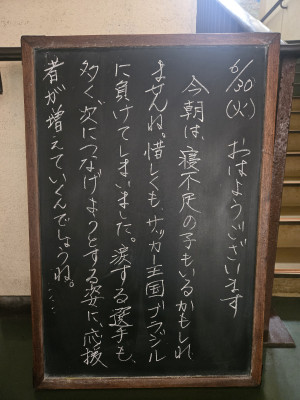 6/30(火)
おはようございます
今朝は寝不足の子もいるかもしれ
ませんね。惜しくも、サッカー王国ブラジル
に負けてしまいました。涙する選手も、
多く次につなげようとする姿に、応援
者が増えていくんでしょうね。……